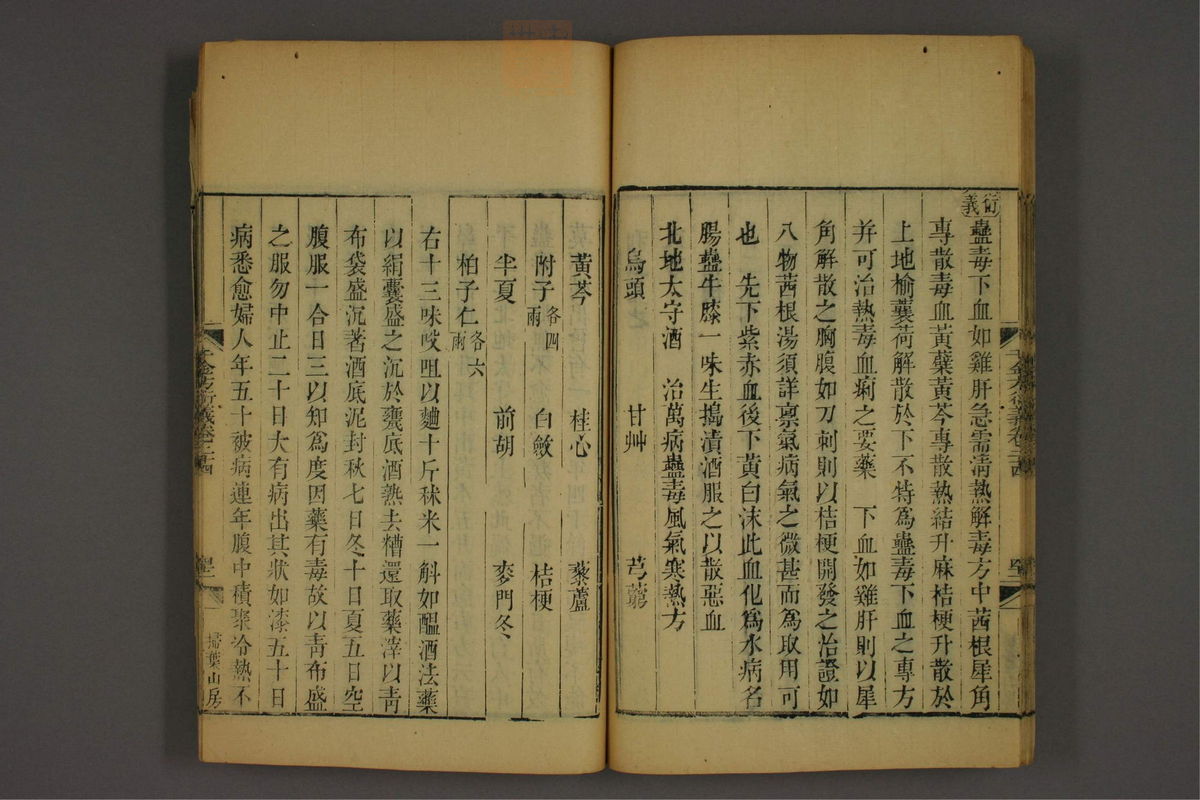 衍義
蠱毒下血如雞肝急需淸熱解毒方中茜根犀角
專散毒血黃蘗黃芩專散熱結升麻桔梗升散於
上地榆蘘荷解散於下不特爲蠱毒下血之專方
并可治熱毒血痢之要藥 下血如雞肝則以犀
角解散之胸腹如刀刺則以桔梗開發之治證如
八物茜根湯須詳禀氣病氣之微甚而爲取用可
也 先下紫赤血後下黃白沫此血化爲水病名
腸蠱牛膝一味生搗漬酒服之以散惡血
北地太守酒 治萬病蠱毒風氣寒熱方
烏頭 甘艸 芎藭
黃芩 桂心 藜蘆
附子各四兩 白斂 桔梗
半夏 前胡 麥門冬
柏子仁各六兩
右十三味㕮咀以麯十斤秫米一斛如醞酒法藥
以絹囊盛之沉於甕底酒熟去糟還取藥滓以靑
布袋盛沉著酒底泥封秋七日冬十日夏五日空
腹服一合日三以知爲度因藥有毒故以靑布盛
之服勿中止二十日大有病出其狀如漆五十日
病悉愈婦人年五十被病連年腹中積聚冷熱不
千金方衍義卷二十四
掃葉山房